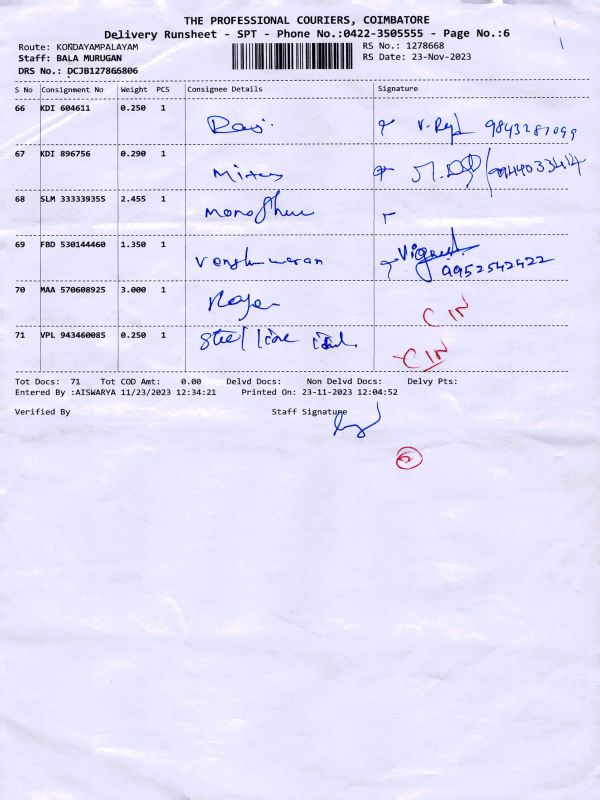 THE PROFESSIONAL COURIERS, COIMBATORE
Delivery Runsheet - SPT - Phone No.:0422-3505555 - Page No.:6
Route: KONDAYAMPALAYAM RS No.: 1278668
Staff: BALA MURUGAN RS Date: 23-Nov-2023
DRS No.: DCJB127866806
S No Consignment No Weight PCS Consignee Details Signature
66 KDI 604611 0.250 1
Ravi 9843287099
67 KDI 896756 0.290 1
68 SLM 333339355 2.455 1
69 FBD 530144460 1.350 1
Vignesh
9952542422
70 MAA 570608925 3.000 1
CIN
71 VPL 943460085 0.250 1
Steel
CIN
Tot Docs: 71 Tot COD Amt: 0.00 Delvd Docs: Non Delvd Docs: Delvy Pts:
Entered By :AISWARYA 11/23/2023 12:34:21 Printed On: 23-11-2023 12:04:52
Verified By Staff Signature